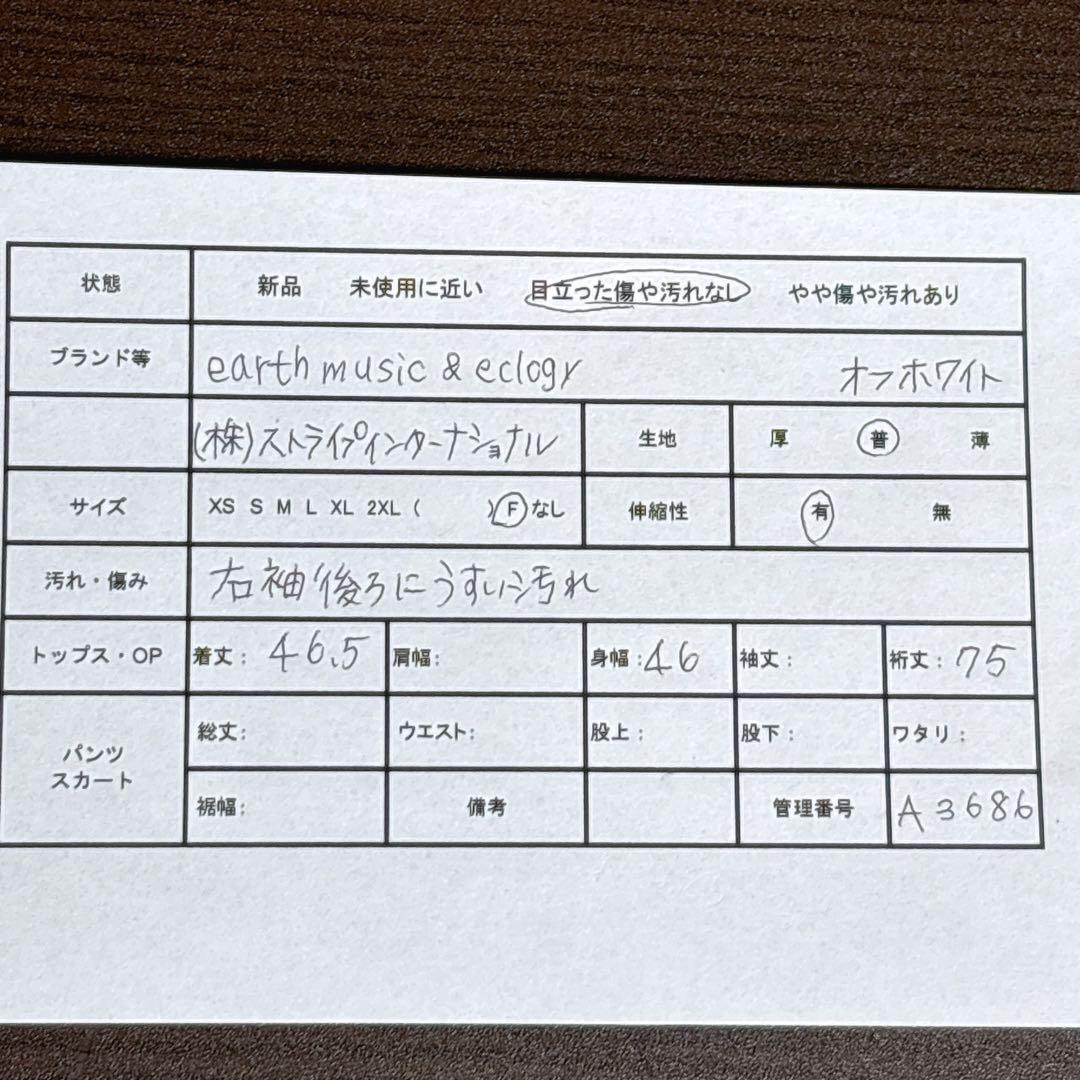 状態 新品 未使用に近い 目立った傷や汚れなし やや傷や汚れあり
ブランド等 earth music & eclogy オフホワイト
(株)ストライプインターナショナル 生地 厚 普 薄
サイズ XS S M L XL 2XL ( ) F なし 伸縮性 有 無
汚れ・傷み 右袖後ろにうすい汚れ
トップス・OP 着丈: 46.5 肩幅: 身幅: 46 袖丈: 裄丈: 75
パンツ
スカート
総丈: ウエスト: 股上: 股下: ワタリ:
裾幅: 備考 管理番号 A3686